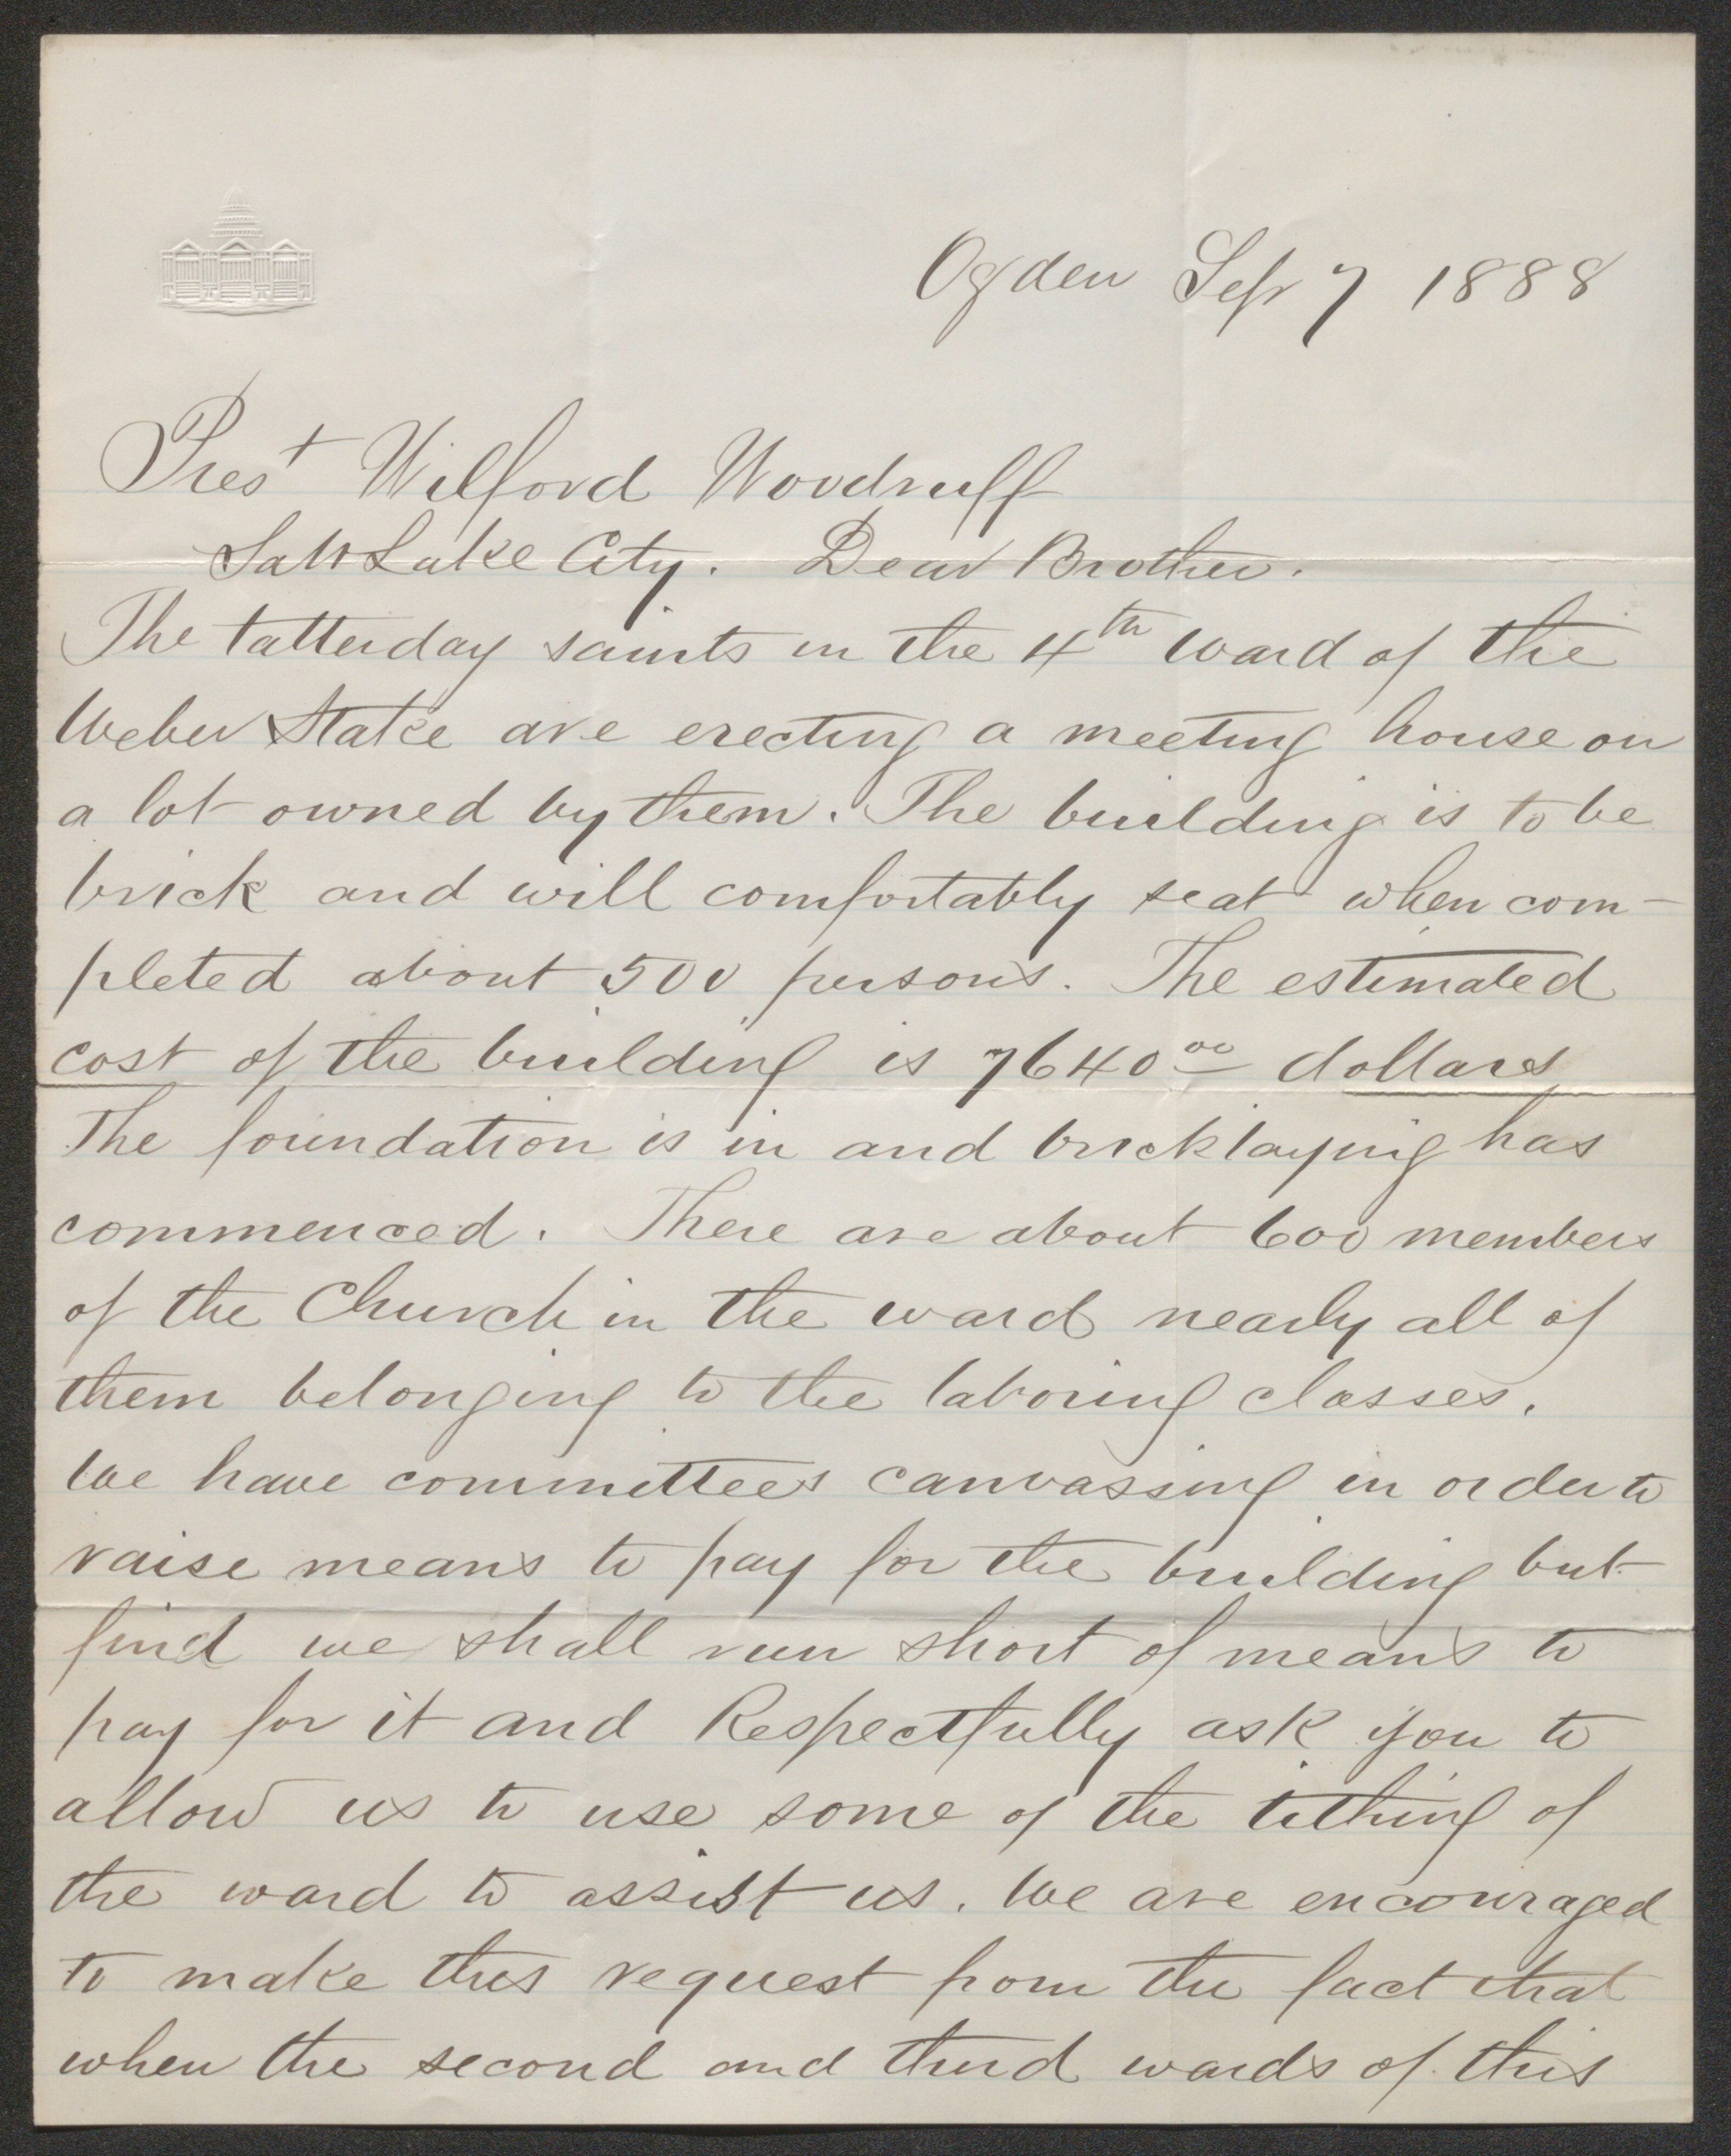 Ogden Sep 7 1888
Prest Wilford Woodruff
Salt Lake City. Dear Brother.
The latterday saints in the 4th ward of the
Weber Stake are erecting a meeting house on
a lot owned by them. The building is to be
brick and will comfortably seat when com-
pleted about 500 persons. The estimated
cost of the building is 7640 00 dollars
The foundation is in and bricklaying has
commenced. There are about 600 members
of the Church in the ward nearly all of
them belonging to the laboring classes.
We have committees canvassing in order to
raise means to pay for the building but
find we shall run short of means to
pay for it and Respectfully ask you to
allow us to use some of the tithing of
the ward to assist us. We are encouraged
to make this request from the fact that
when the second and third wards of this